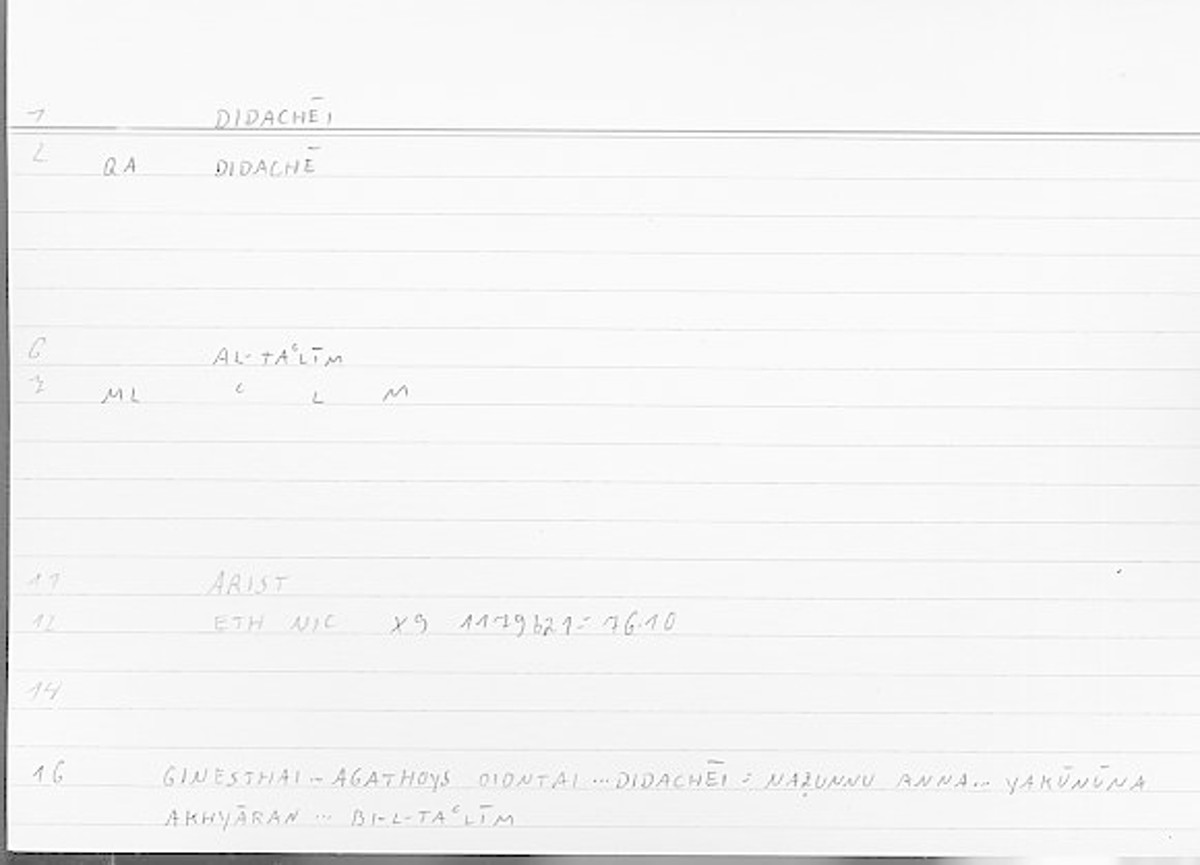 1 DIDACHĒI
2 QA DIDACHĒ
6 AL-TAʿLĪM
7 ML ʿ L M
11 ARIST
12 ETH NIC X9 1179b21 = 76.10
14
16 GINESTHAI ... AGATHOYS OIONTAI ... DIDACHĒI = NAẒUNNU ANNA ... YAKŪNŪNA
AKHYĀRAN ... BI-L-TAʿLĪM